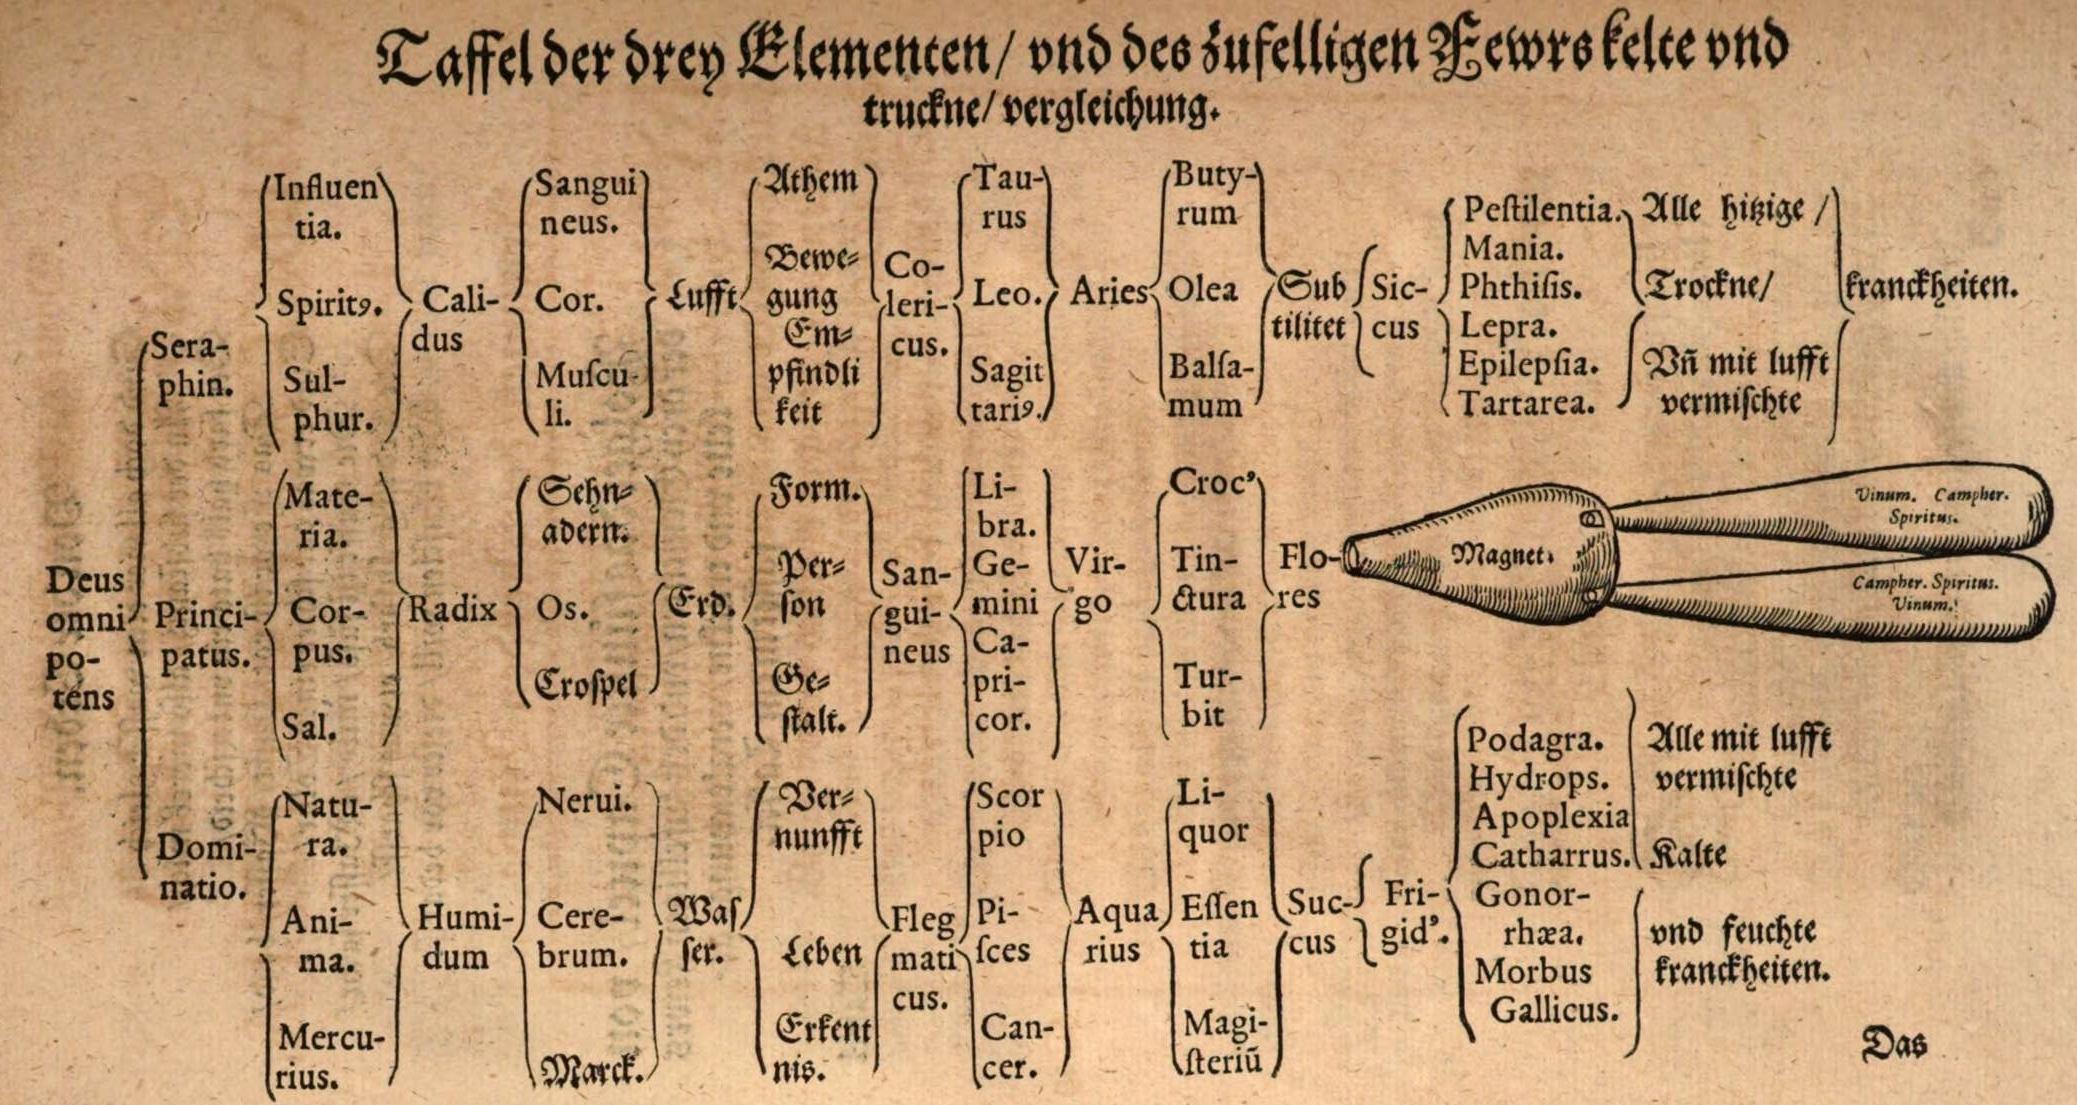 Taffel der drey Elementen/ vnd des zufelligen Fewrs kelte vnd
truckne/ vergleichung.
Deus
omni
po-
tens
Sera-
phin.
Princi-
patus.
Domi-
natio.
Influen
tia.
Spirit9.
Sul-
phur.
Cali-
dus
Sangui
neus.
Cor.
Muſcu-
li.
Lufft
Athem
Bewe⸗
gung
Em⸗
pfindli
keit
Co-
leri-
cus.
Tau-
rus
Leo.
Sagit
tari9.
Aries
Buty-
rum
Olea
Balſa-
mum
Sub
tilitet
Sic-
cus
Peſtilentia.
Mania.
Phthiſis.
Lepra.
Epilepſia.
Tartarea.
Alle hitzige /
Trockne/
Vn̄ mit lufft
vermiſchte
kranckheiten.
Mate-
ria.
Cor-
pus.
Sal.
Radix
Sehn⸗
adern.
Os.
Croſpel
Erd.
Form.
Per⸗
ſon
Ge⸗
ſtalt.
San-
gui-
neus
Li-
bra.
Ge-
mini
Ca-
pri-
cor.
Vir-
go
Croc'
Tin-
ctura
Tur-
bit
Flo-
res
Magnet.
Vinum. Campher.
Spiritus.
Campher. Spiritus.
Vinum.
Natu-
ra.
Ani-
ma.
Mercu-
rius.
Humi-
dum
Nerui.
Cere-
brum.
Marck.
Waſ
ſer.
Ver⸗
nunfft
Leben
Erkent
nis.
Fleg
mati
cus.
Scor
pio
Pi-
ſces
Can-
cer.
Aqua
rius
Li-
quor
Eſſen
tia
Magi-
ſteriū
Suc-
cus
Fri-
gid'.
Podagra.
Hydrops.
Apoplexia
Catharrus.
Gonor-
rhæa.
Morbus
Gallicus.
Alle mit lufft
vermiſchte
Kalte
vnd feuchte
kranckheiten.
Das